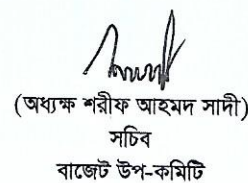 (অধ্যক্ষ শরীফ আহমদ সাদী)
সচিব
বাজেট উপ-কমিটি